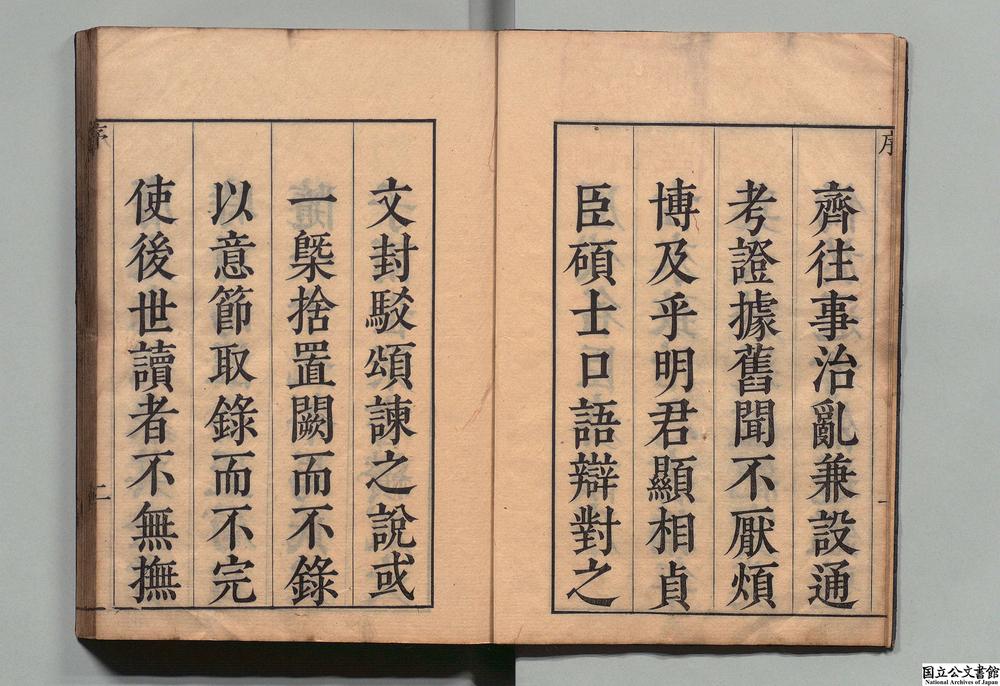 齊往事治亂兼設通
考證據舊聞不厭煩
博及乎明君顯相貞
臣碩士口語辯對之
文封駁頌諫之說或
一槩捨置闕而不錄
以意節取錄而不完
使後世讀者不無撫
序
二
国立公文書館
National Archives of Japan